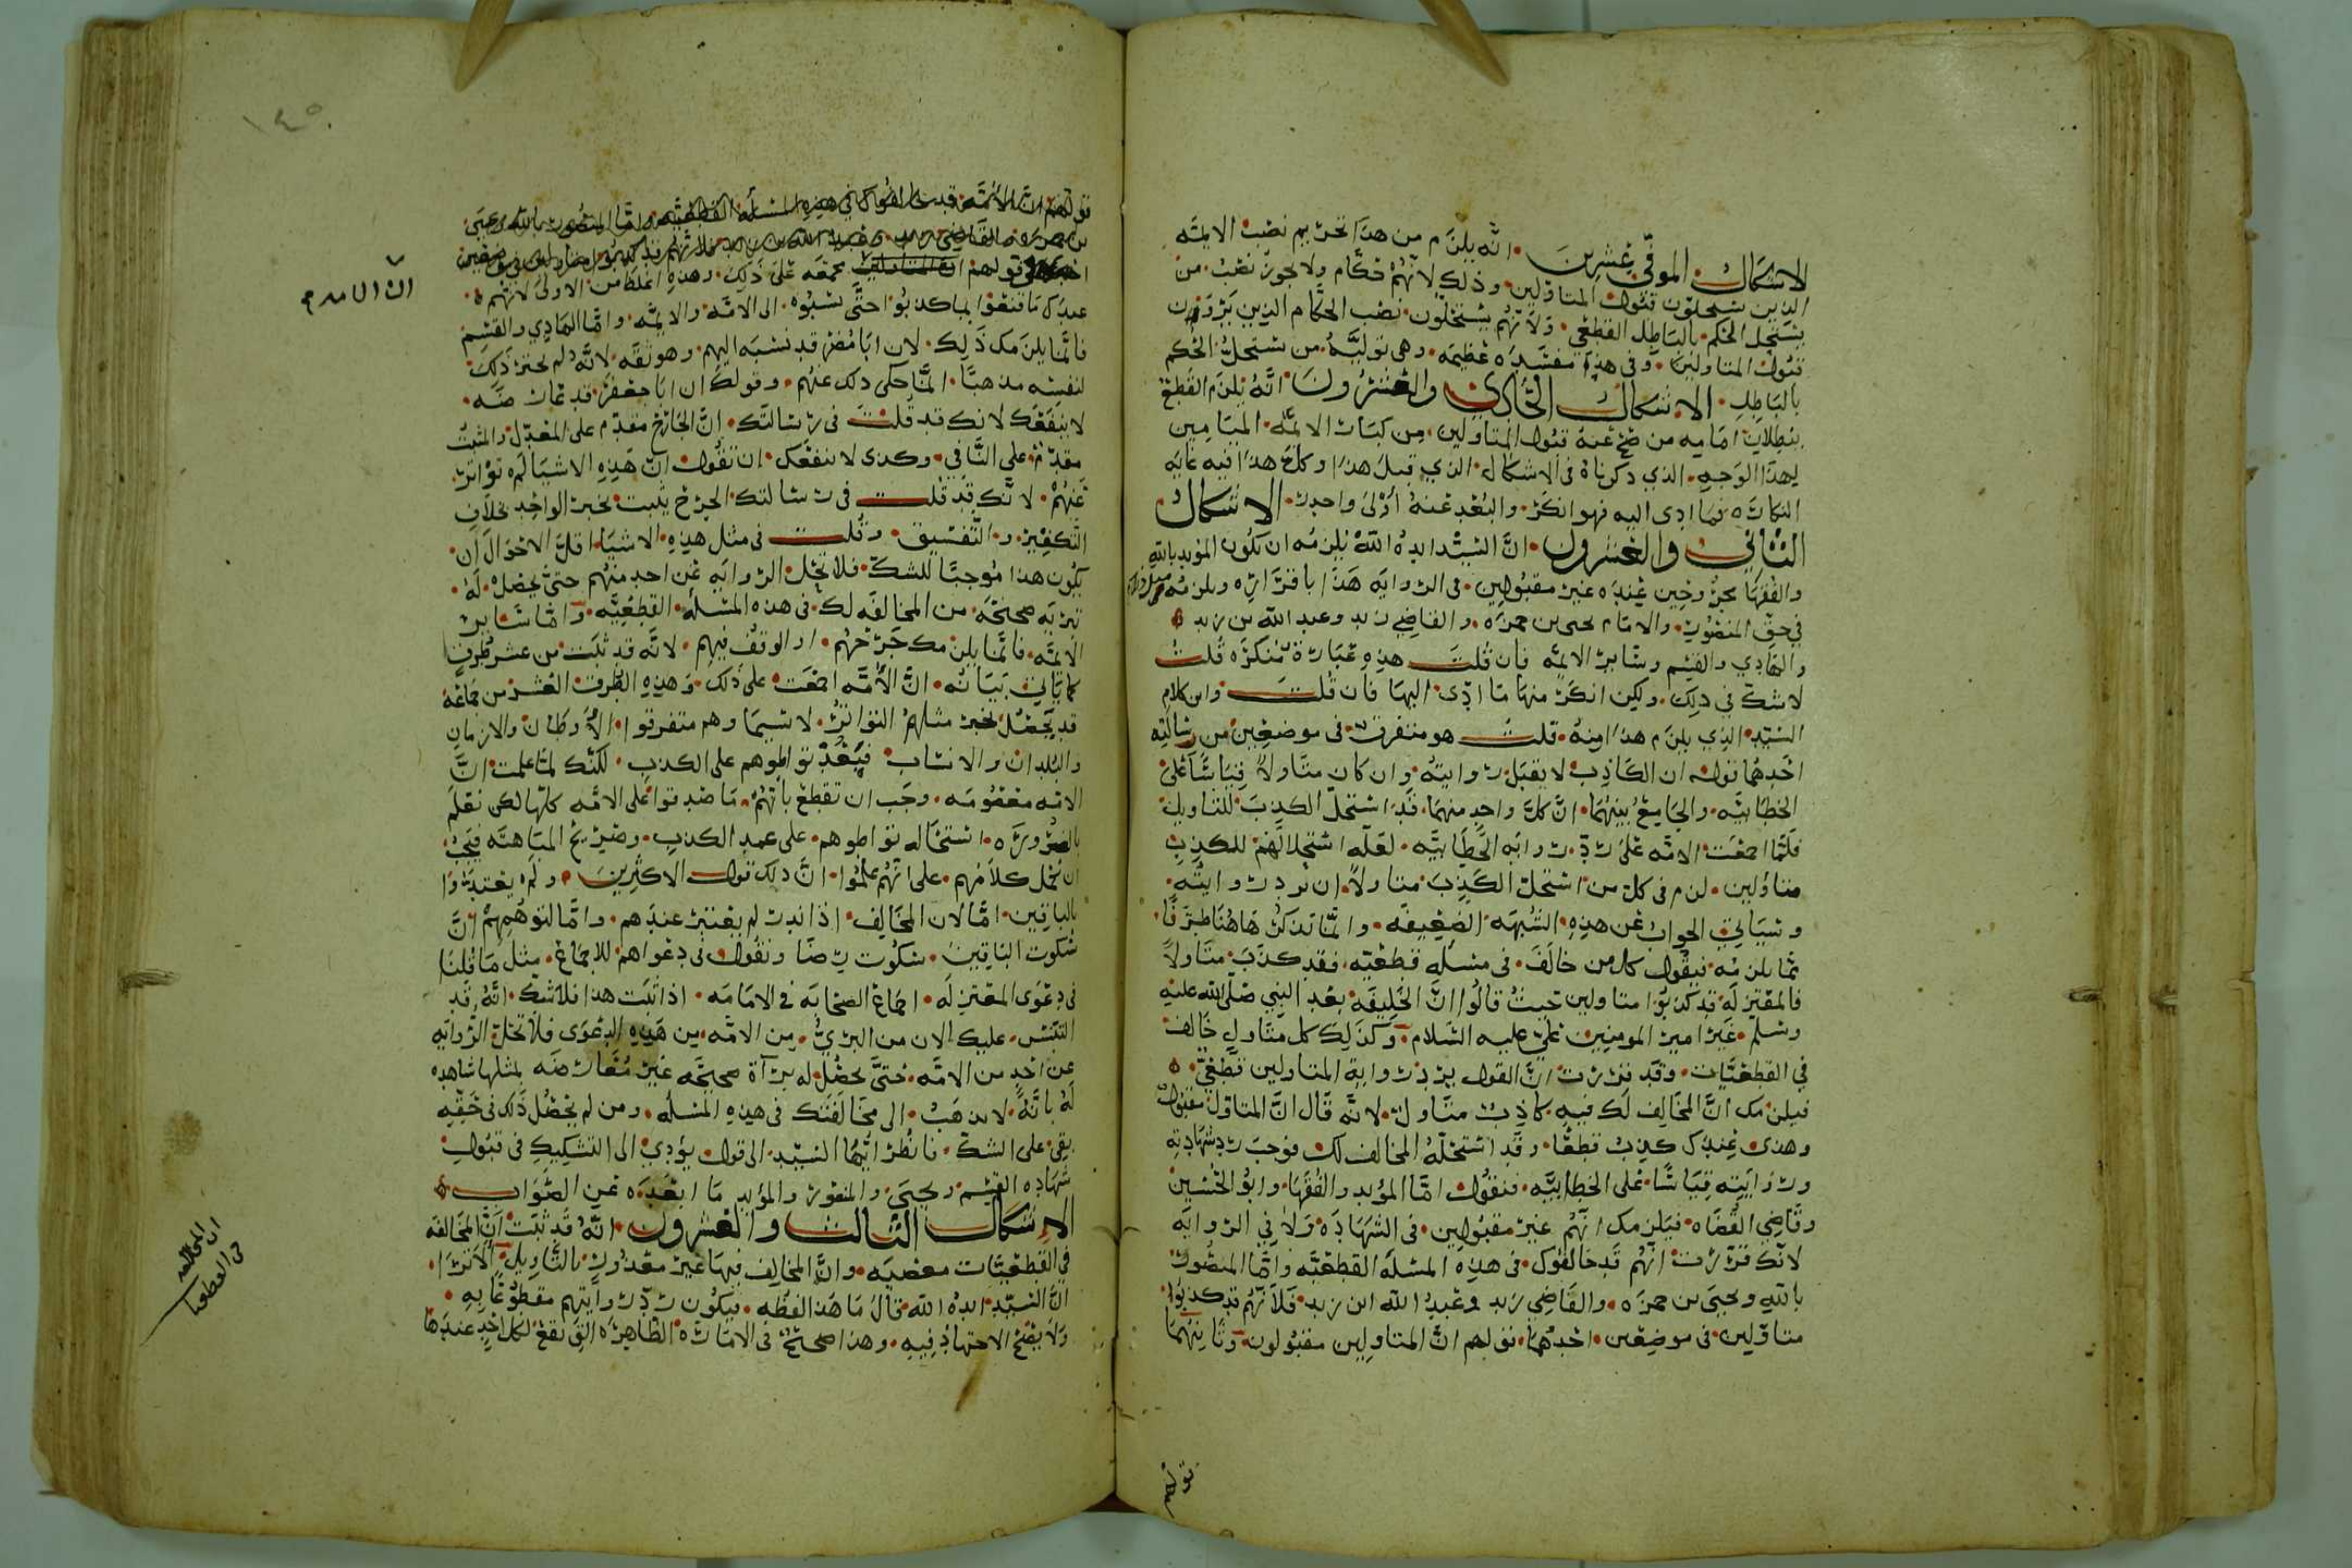 الاشكال الموفي عشرين انه يلزم من هذا تحريم نصب الائمه
الذين يستحلون قبول المتاولين وذلك لانهم حكام ولا يجوز نصب من
يستحل الحكم بالباطل القطعي ولانهم يستحلون نصب الحكام الذين يرون
قبول المتاولين وفي هذا مفسده عظيمه وهي توليه من يستحل الحكم
بالباطل الاشكال الحادي والعشرون انه يلزم القطع
ببطلان امامه من صح عنه قبول المتاولين من كبار الائمه الميامين
لهذا الوجه الذي ذكرناه في الاشكال الذي قبل هذا وكل هذا فيه غايه
النكاره فما ادى اليه فهو انكر والبعد عنه اولى واحرى الاشكال
الثاني والعشرون ان السيد ايده الله يلزمه ان يكون المويد بالله
والفقها مجروحين عنده غير مقبولين في الروايه هذا باقراره ويلزمه مثل ذلك
في حق المنصور والامام يحيى بن حمزه والقاضي زيد وعبد الله بن زيد
والهادي والقسم وساير الائمه فان قلت هذه عباره منكره قلت
لا شك في ذلك ولكن انكر منها ما ادى اليها فان قلت واين كلام
السيد الذي يلزم هذا منه قلت هو متفرق في موضعين من رسالته
احدهما قوله ان الكاذب لا يقبل روايته وان كان متاولا قياسا على
الخطابيه والجامع بينهما ان كل واحد منهما قد استحل الكذب للتاويل
فلما اجمعت الامه على رد روايه الخطابيه لعله استحلالهم للكذب
متاولين لزم في كل من استحل الكذب متاولا ان نرد روايته
وسياتي الجواب عن هذه الشبهه الضعيفه وانما نذكر هاهنا طرفا
مما يلزمه فيقول كل من خالف في مسله قطعيه فقد كذب متاولا
فالمعتزله قد كذبوا متاولين حيث قالوا ان الخليفه بعد النبي صلى الله عليه
وسلم غير امير المومنين علي عليه السلام وكذلك كل متاول خالف
في القطعيات وقد قررت ان القول برد روايه المتاولين قطعي
فيلزمك ان المخالف لك فيه كاذب متاول لانه قال ان المتاول مقبول
وهذى عندك كذب قطعا وقد استحله المخالف لك فوجب رد شهادته
ورد روايته قياسا على الخطابيه فنقول اما المويد والفقها وابو الحسين
وقاضي القضاه فيلزمك انهم غير مقبولين في الشهاده ولا في الروايه
لانك قررت انهم قد خالفوك في هذه المسله القطعيه واما المنصور
بالله ويحيى بن حمزه والقاضي زيد وعبد الله ابن زيد فلانهم قد كذبوا
متاولين في موضعين احدهما قولهم ان المتاولين مقبولون وثانيهما
قولهم
١٤٥
قولهم ان الائمه قد خالفوك في هذه المسله القطعيه واما المنصور بالله ويحيى
بن حمزه والقاضي زيد وعبد الله بن زيد فلانهم قد كذبوا متاولين في موضعين
احدهما قولهم ان المتاولين مجمعه على ذلك وهذه اغلظ من الاولى لانهم
عندك ما قنعوا بما كذبوا حتى نسبوه الى الامه والائمه واما الهادي والقسم
فانما يلزمك ذلك لان ابا مضر قد نسبه اليهم وهو ثقه لانه لم يحتز ذلك
لنفسه مذهبا انما حكى ذلك عنهم وقولك ان ابا جعفر قد عارضه
لا ينفعك لانك قد قلت في رسالتك ان الجارح مقدم على المعدل والمثبت
مقدم على النافي وكذى لا ينفعك ان تقول ان هذه الاشيا لم تواتر
عنهم لانك قد قلت في رسالتك الجرح يثبت بخبر الواحد بخلاف
التكفير والتفسيق وقلت في مثل هذه الاشيا اقل الاحوال ان
يكون هذا موجبا للشك فلا تحل الروايه عن احد منهم حتى يحصل له
تبريه صحيحه من المخالفه لك في هذه المسله القطعيه واما ساير
الائمه فانما يلزمك جرحهم او الوقف فيهم لانه قد ثبت من عشر طرق
كما ياتي بيانه ان الامه اجمعت على ذلك وهذه الطرق العشر من جماعه
قد يحصل بخبر مثلهم التواتر لا سيما وهم متفرقوا الاوطان والازمان
والبلدان والانساب فيبعد تواطوهم على الكذب لكنك لما علمت ان
الامه معصومه وجب ان تقطع بانهم ما صدقوا على الامه كلها لكن نعلم
بالضروره استحاله تواطوهم على عمد الكذب وصريح المباهته فيجب
ان نحمل كلامهم على انهم علموا ان ذلك قول الاكثرين ولم يعتدوا
بالباقين اما لان المخالف اذا ندر لم يعتبر عندهم واما لتوهمهم ان
سكوت الباقين سكوت رضا ونقول في دعواهم للاجماع مثل ما قلنا
في دعوى المعتزله اجماع الصحابه في الامامه اذا ثبت هذا فلا شك انه قد
التبس عليك الان من البري من الامه من هذه الدعوى فلا تحل الروايه
عن احد من الامه حتى يحصل له براة صحيحه غير معارضه بمثلها شاهده
له بانه لا يذهب الى مخالفتك في هذه المسله ومن لم يحصل ذلك في حقه
بقي على الشك فانظر ايها السيد الى قول يؤدي الى التشكيك في قبول
شهاده القسم ويحيى والمنصور والمويد ما ابعده عن الصواب
الاشكال الثالث والعشرون انه قد ثبت ان المخالفه
في القطعيات معصيه وان المخالف فيها غير معذور بالتاويل الا ترى
ان السيد ايده الله قال ما هذا لفظه فيكون رد روايتهم مقطوعا به
ولا يصح الاجتهاد فيه وهذا صحيح في الاماره الظاهره التي تقع لكل احد عندها
ان المخالفه
في القطعيات